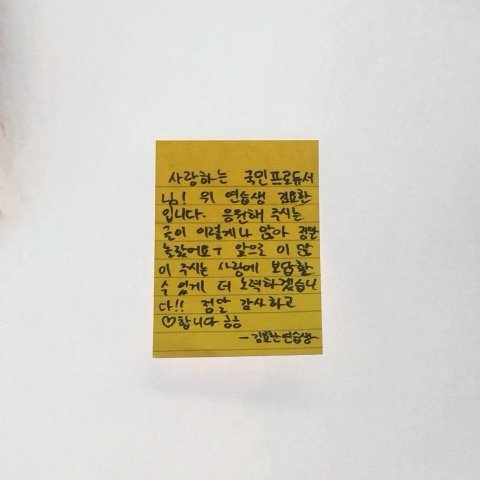 사랑하는 국민프로듀서
님! 위 연습생 김요한
입니다. 응원해 주시는
글이 이렇게나 많아 정말
놀랐어요ㅜ 앞으로 더 많
이 주시는 사랑에 보답할
수 있게 더 노력하겠습니
다!! 정말 감사하고
♡합니다 ㅎㅎ
-김요한연습생-